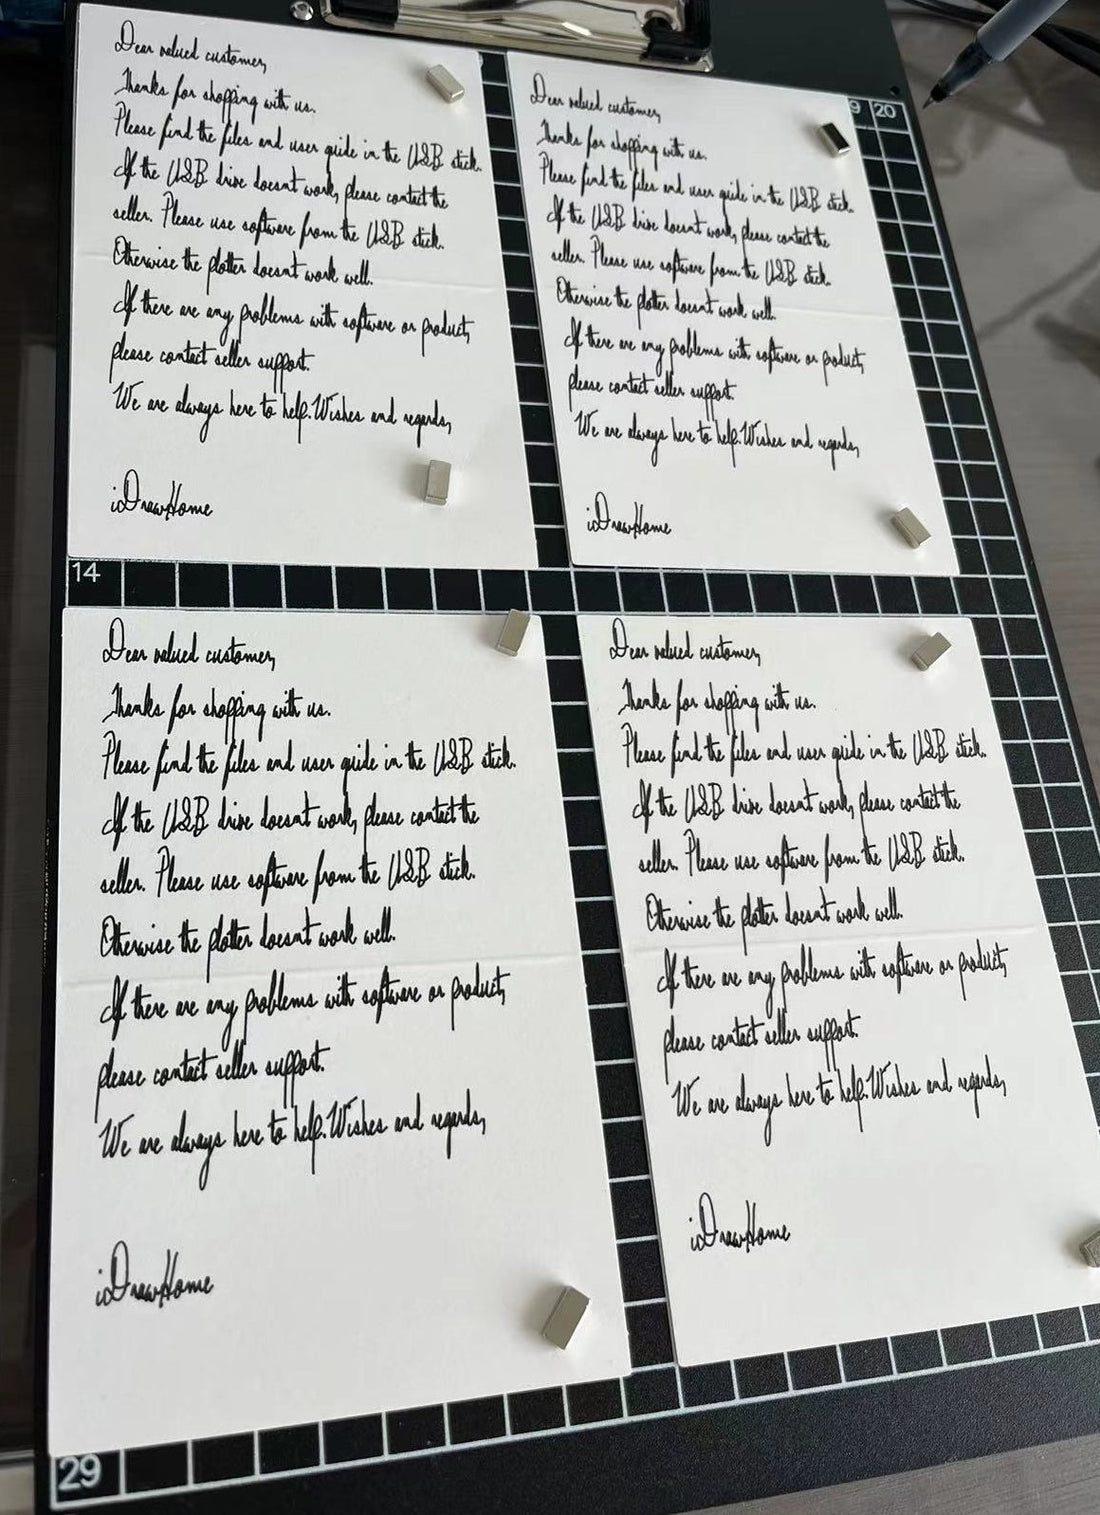 Dear valued customer,
Thanks for shopping with us.
Please find the files and user guide in the USB stick.
If the USB drive doesnt work, please contact the
seller. Please use software from the USB stick.
Otherwise the plotter doesn't work well.
If there are any problems with software or product,
please contact seller support.
We are always here to help.Wishes and regards,
iDrawHome
9 20
Dear valued customer,
Thanks for shopping with us.
Please find the files and user guide in the USB stick.
If the USB drive doesnt work, please contact the
seller. Please use software from the USB stick.
Otherwise the plotter doesn't work well.
If there are any problems with software or product,
please contact seller support.
We are always here to help.Wishes and regards,
iDrawHome
14
Dear valued customer,
Thanks for shopping with us.
Please find the files and user guide in the USB stick.
If the USB drive doesnt work, please contact the
seller. Please use software from the USB stick.
Otherwise the plotter doesn't work well.
If there are any problems with software or product,
please contact seller support.
We are always here to help.Wishes and regards,
iDrawHome
Dear valued customer,
Thanks for shopping with us.
Please find the files and user guide in the USB stick.
If the USB drive doesnt work, please contact the
seller. Please use software from the USB stick.
Otherwise the plotter doesn't work well.
If there are any problems with software or product,
please contact seller support.
We are always here to help.Wishes and regards,
iDrawHome
29